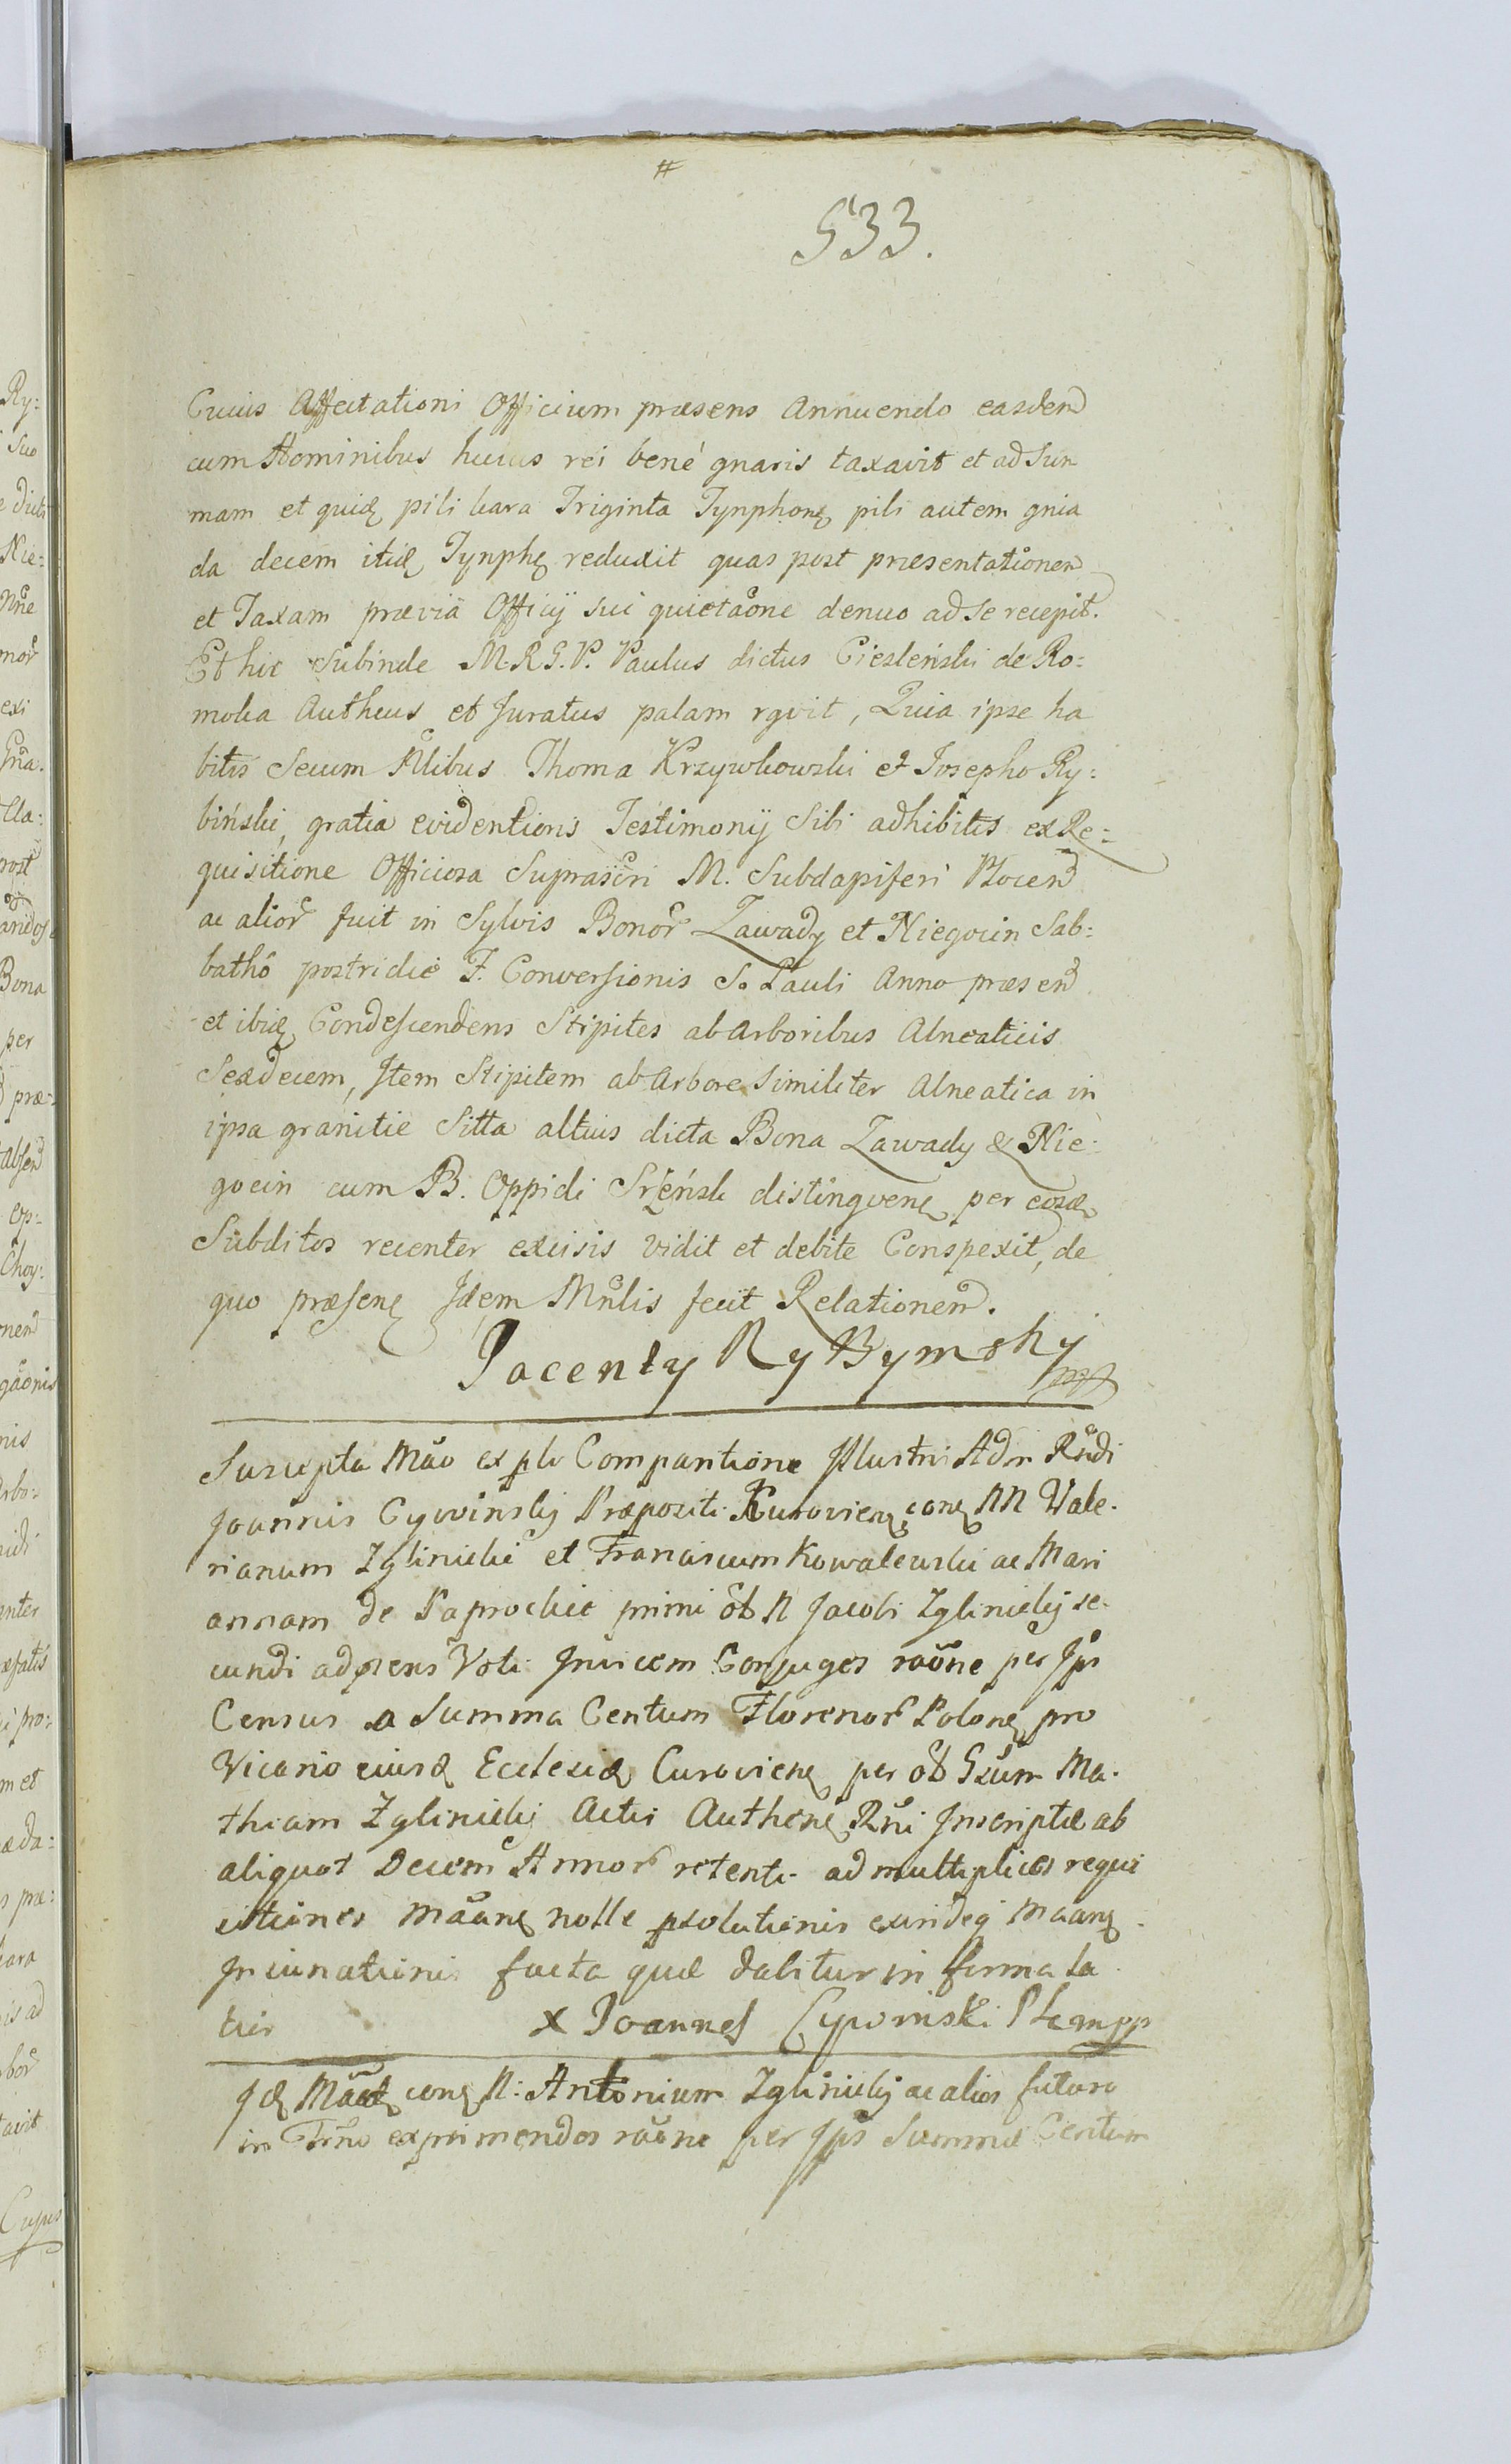 #
533.
Cuius Affectationi Officium præsens Annuendo easdem
cum Hominibus huius rei bené gnaris taxavit et ad Sum
mam et quidę pili kara Triginta Tynphonę pili autem gnia
da decem itidę Tynphę reduxit quas post præsentationem
et Taxam prævia Officij sui quietãone denuo ad se recepit.
Et hic Subinde M.R.G.V. Paulus dictus Ciesleński de Ro:
moka Autheus et Juratus palam rgvit, Quia ipse ha
bitis Secum Nlibus Thoma Krzywkowski et Josepho Ry:
biński, gratia evidentioris Testimonij Sibi adhibitis ex Re:
quisitione Officiosa Suprascri M. Subdapiferi Plocen
ac alior fuit in Sylvis Bonor Zawady et Niegocin Sab:
bathô postridie F. Conversionis S. Pauli Anno præsen
et ibię Condescendens Stipites ab Arboribus Alneaticis
Sexdecem, Item Stipitem ab Arbore Similiter Alneatica in
ipsa granitie Sitta altius dicta Bona Zawady & Nie:
gocin cum B. Oppidi Srzeńsk distingvenę per eosdę
Subditos recenter excisis vidit et debite Conspexit, de
quo præsenę Idem Mnlis fecit Relationem.
Jacenty RyBymski mp
Suscepta Mão ex ple Comparitione Illustri Adm Rndi
Joannis Cywinskij Præpositi Kurovienę conę NN Vale.
rianum Zglinicki et Franciscum Kowalewski ac Mari
annam de Paprockie primi ob N Jacobi Zglinickij se-
cundi ad præns Voti Invicem Conjuges raõne per Ips
Census a Summa Centum Florenor Polonę pro
Vicario eiusd Ecclesiæ Curovienę per ob Gsum Ma.
thiam Zglinickij Actis Authenę Rni Inscriptæ ab
aliquot Decem Annor retenti ad multiplices requi
sitiones Mãanę nolle psolutionis eusideq Maanę
Incusationis facta quæ dabitur in forma la
tior x Joannes Cywinski P K mpp
Idę Mãatę conę N: Antonium Zglinickij ac alios futuro
in Trno exprimendos raõne per Ips Summæ Centum